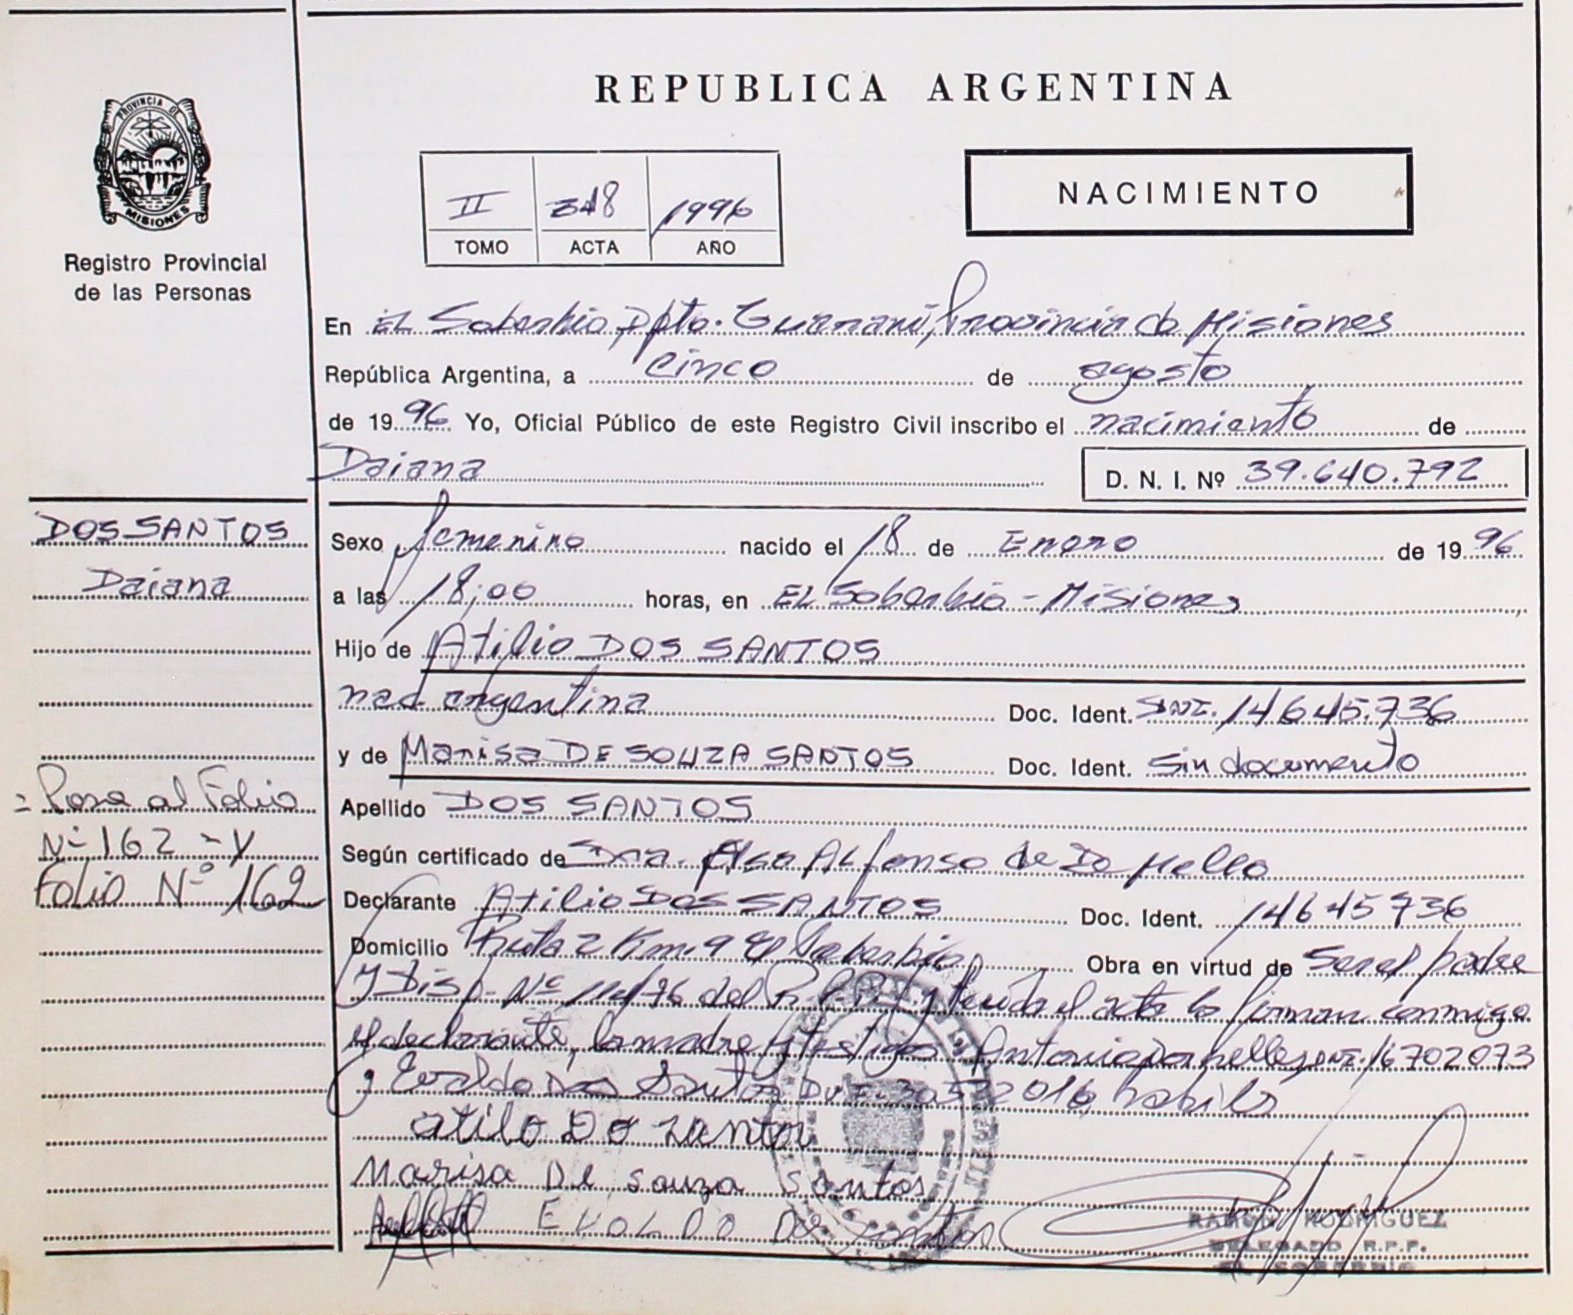 REPUBLICA ARGENTINA
PROVINCIA DE
MISIONES
Registro Provincial
de las Personas
II 348 1996
TOMO ACTA AÑO
NACIMIENTO
En EL Soberbio, Dpto. Guaraní, Provincia de Misiones
República Argentina, a cinco de agosto
de 1996 Yo, Oficial Público de este Registro Civil inscribo el nacimiento de
Daiana
D. N. I. Nº 39.640.792
DOS SANTOS
Daiana
Sexo femenino nacido el 18 de Enero de 1996
a las 18,00 horas, en EL Soberbio - Misiones
Hijo de Atilio DOS SANTOS
nac argentina Doc. Ident. DNI. 14645.736
y de Marisa DE SOUZA SANTOS Doc. Ident. Sin documento
= Pasa al Folio
Nº 162 = y
Folio Nº 162
Apellido DOS SANTOS
Según certificado de Dra. Elsa Alfonso de De Mello
Declarante Atilio DOS SANTOS Doc. Ident. 14645736
Domicilio Ruta 2 Km. 9 El Soberbio Obra en virtud de Ser el padre
y Disp. Nº /96 del R.P.P. y leida el acta la firman conmigo
el declarante, la madre y testigos Antonio DNI. 16702073
y Evaldo Dos Santos DNI. 2016, habila
atilo DO zantos
Marisa De Souza Santos
EVALDO Dos Santos
RAMON RODRIGUEZ
DELEGADO R.P.P.
EL SOBERBIO